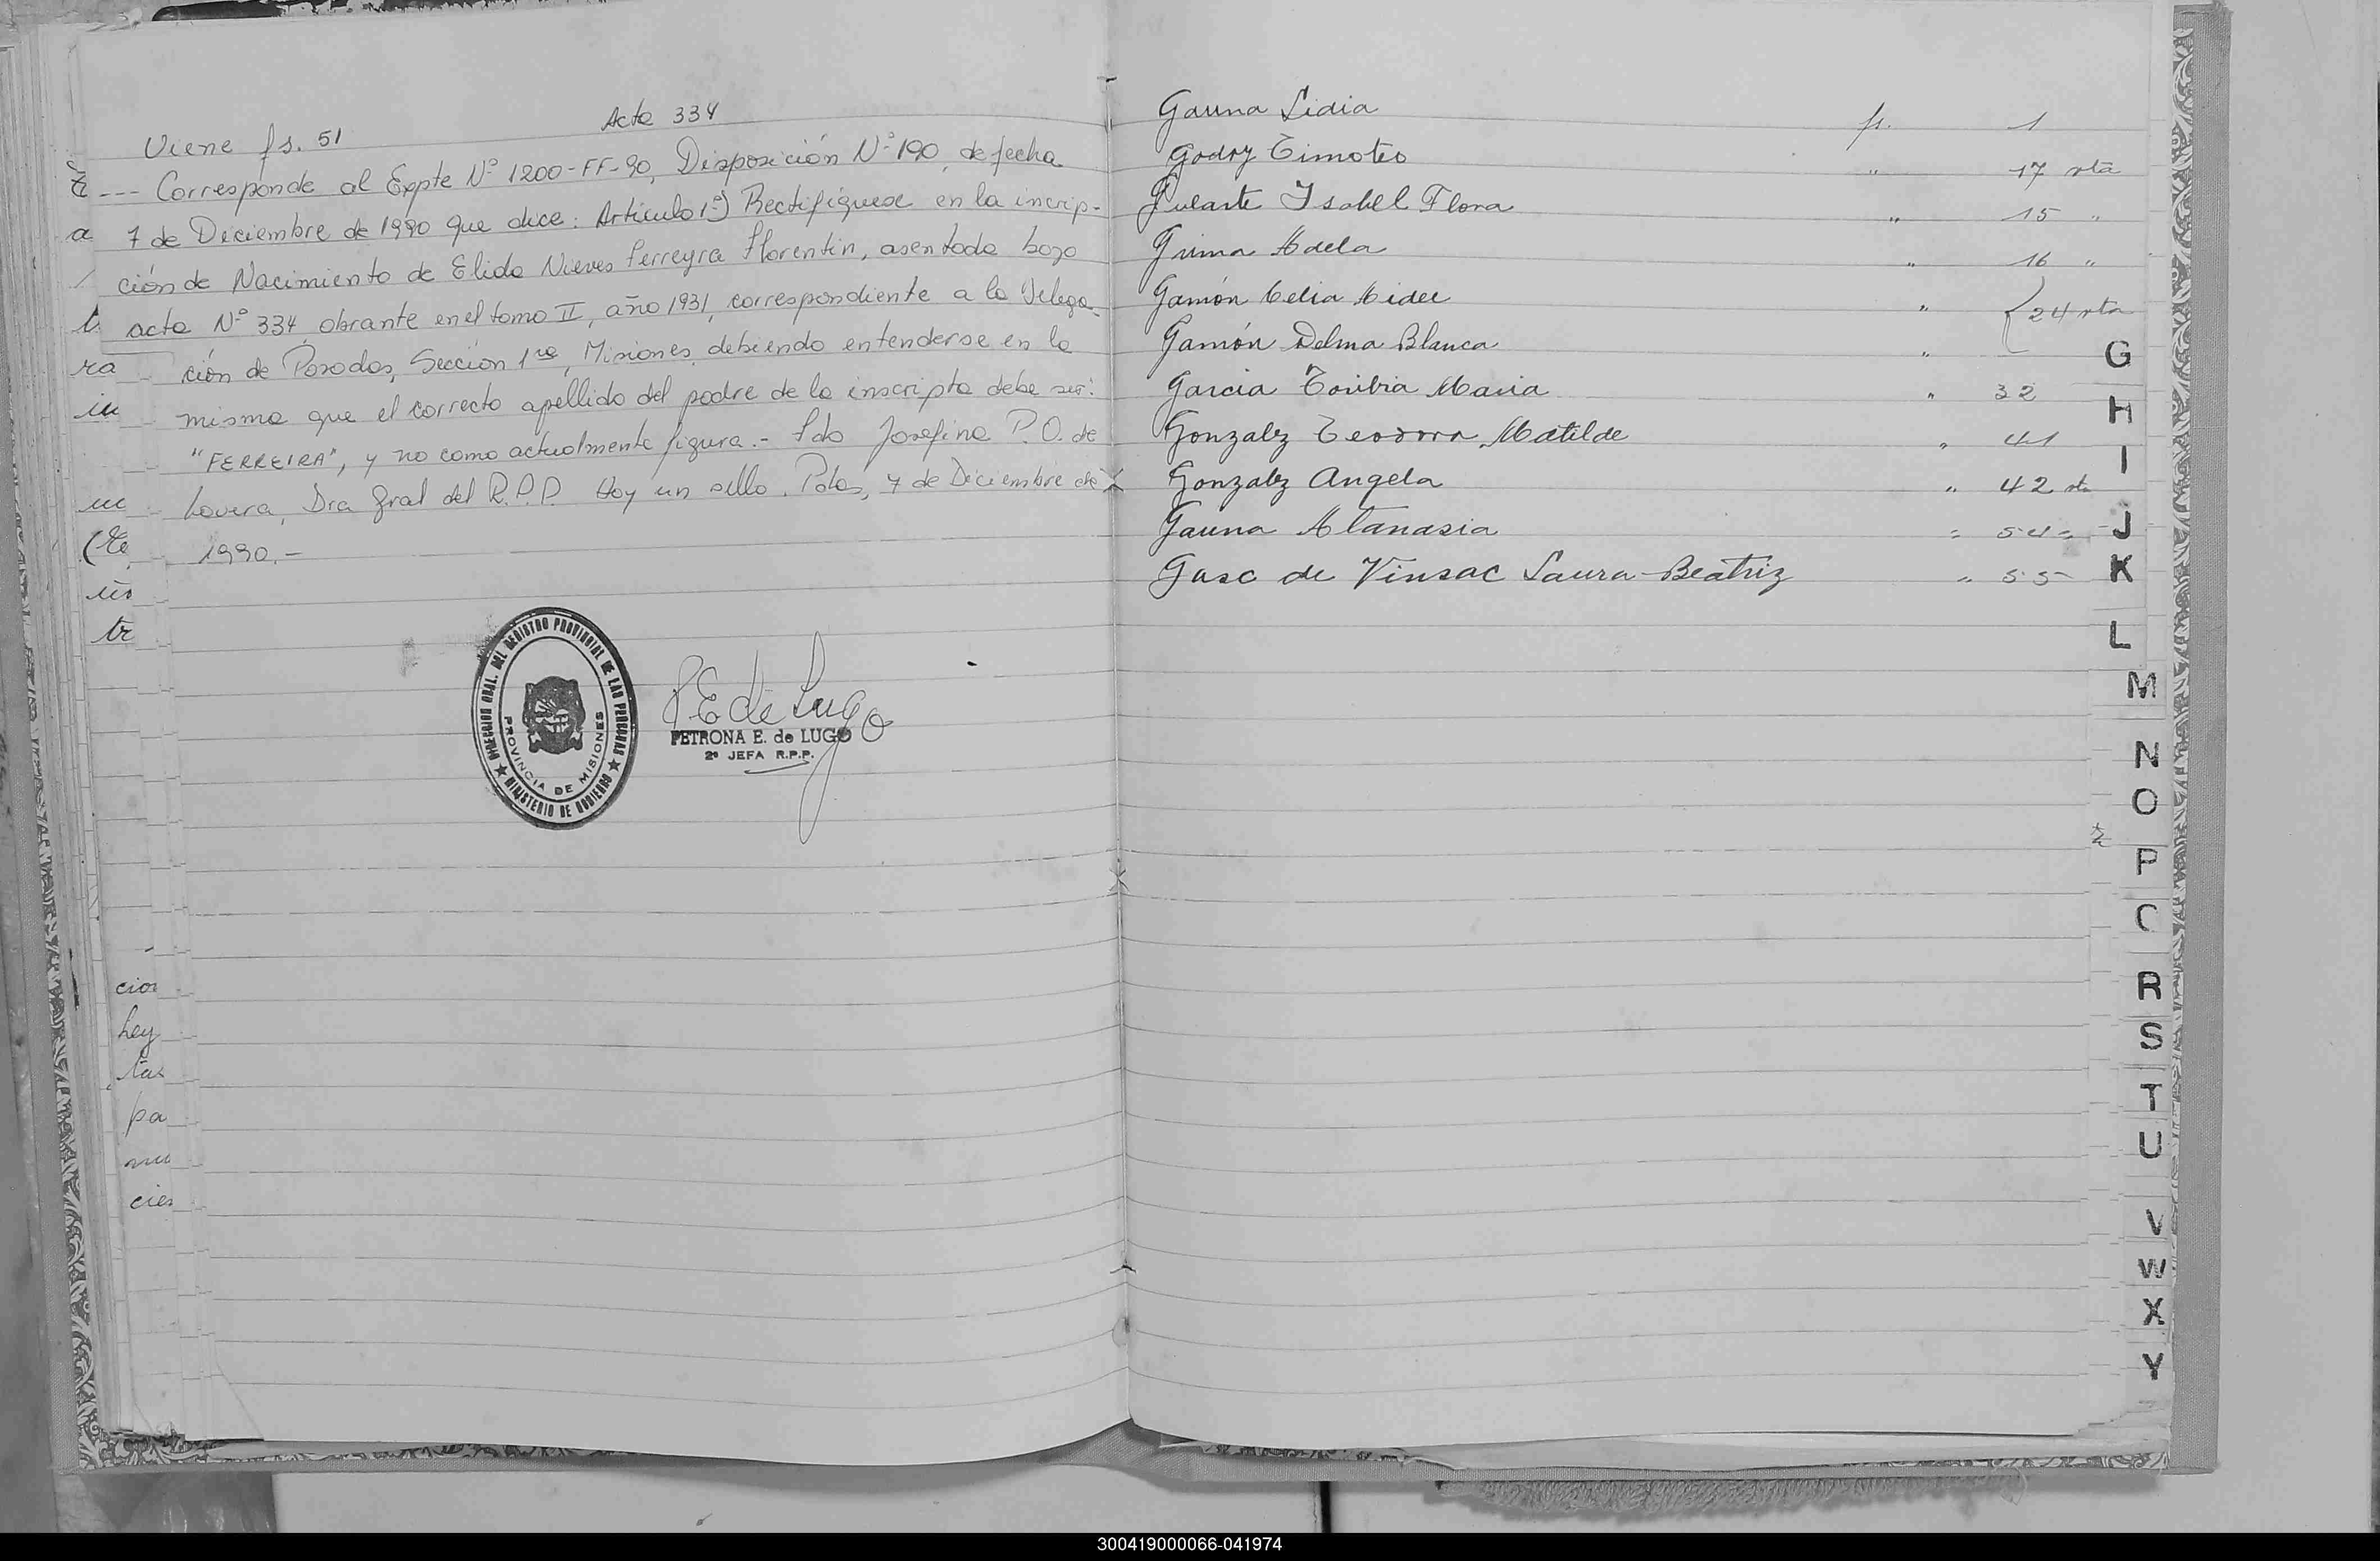 Acta 334
Viene fs. 51
--- Corresponde al Expte Nº 1200-FF-90, Disposición Nº 190, de fecha
7 de Diciembre de 1990 que dice: Artículo 1º) Rectifíquese en la inscrip-
ción de Nacimiento de Elida Nieves Ferreyra Florentin, asentada bajo
acta Nº 334 obrante en el tomo II, año 1931, correspondiente a la Delega-
ción de Posadas, Sección 1ra, Misiones, debiendo entenderse en la
misma que el correcto apellido del padre de la inscripta debe ser:
"FERREIRA", y no como actualmente figura.- Fdo Josefina P. O. de
Lovera, Dra Gral del R.P.P. Hay un sello. Pdas, 7 de Diciembre de
1990.-
DIRECCION GRAL. DEL REGISTRO PROVINCIAL DE LAS PERSONAS
PROVINCIA DE MISIONES
MINISTERIO DE GOBIERNO
P E de Lugo
PETRONA E. de LUGO
2º JEFA R.P.P.
a
ra
in
cion
ley
tas
pa
nu
cies
Gauna Lidia fs. 1
Godoy Timoteo " 17 vta
Isabel Flora " 15 "
Adela " 16 "
Gamón Celia " 24 vta
Gamón Delma Blanca "
Garcia Toribia Maria " 32
Gonzalez Teodora Matilde " 41
Gonzalez Angela " 42 vta
Gauna Atanasia " 54
Gasc de Vinsac Laura Beatriz " 55
G
H
I
J
K
L
M
N
O
P
C
R
S
T
U
V
W
X
Y
300419000066-041974